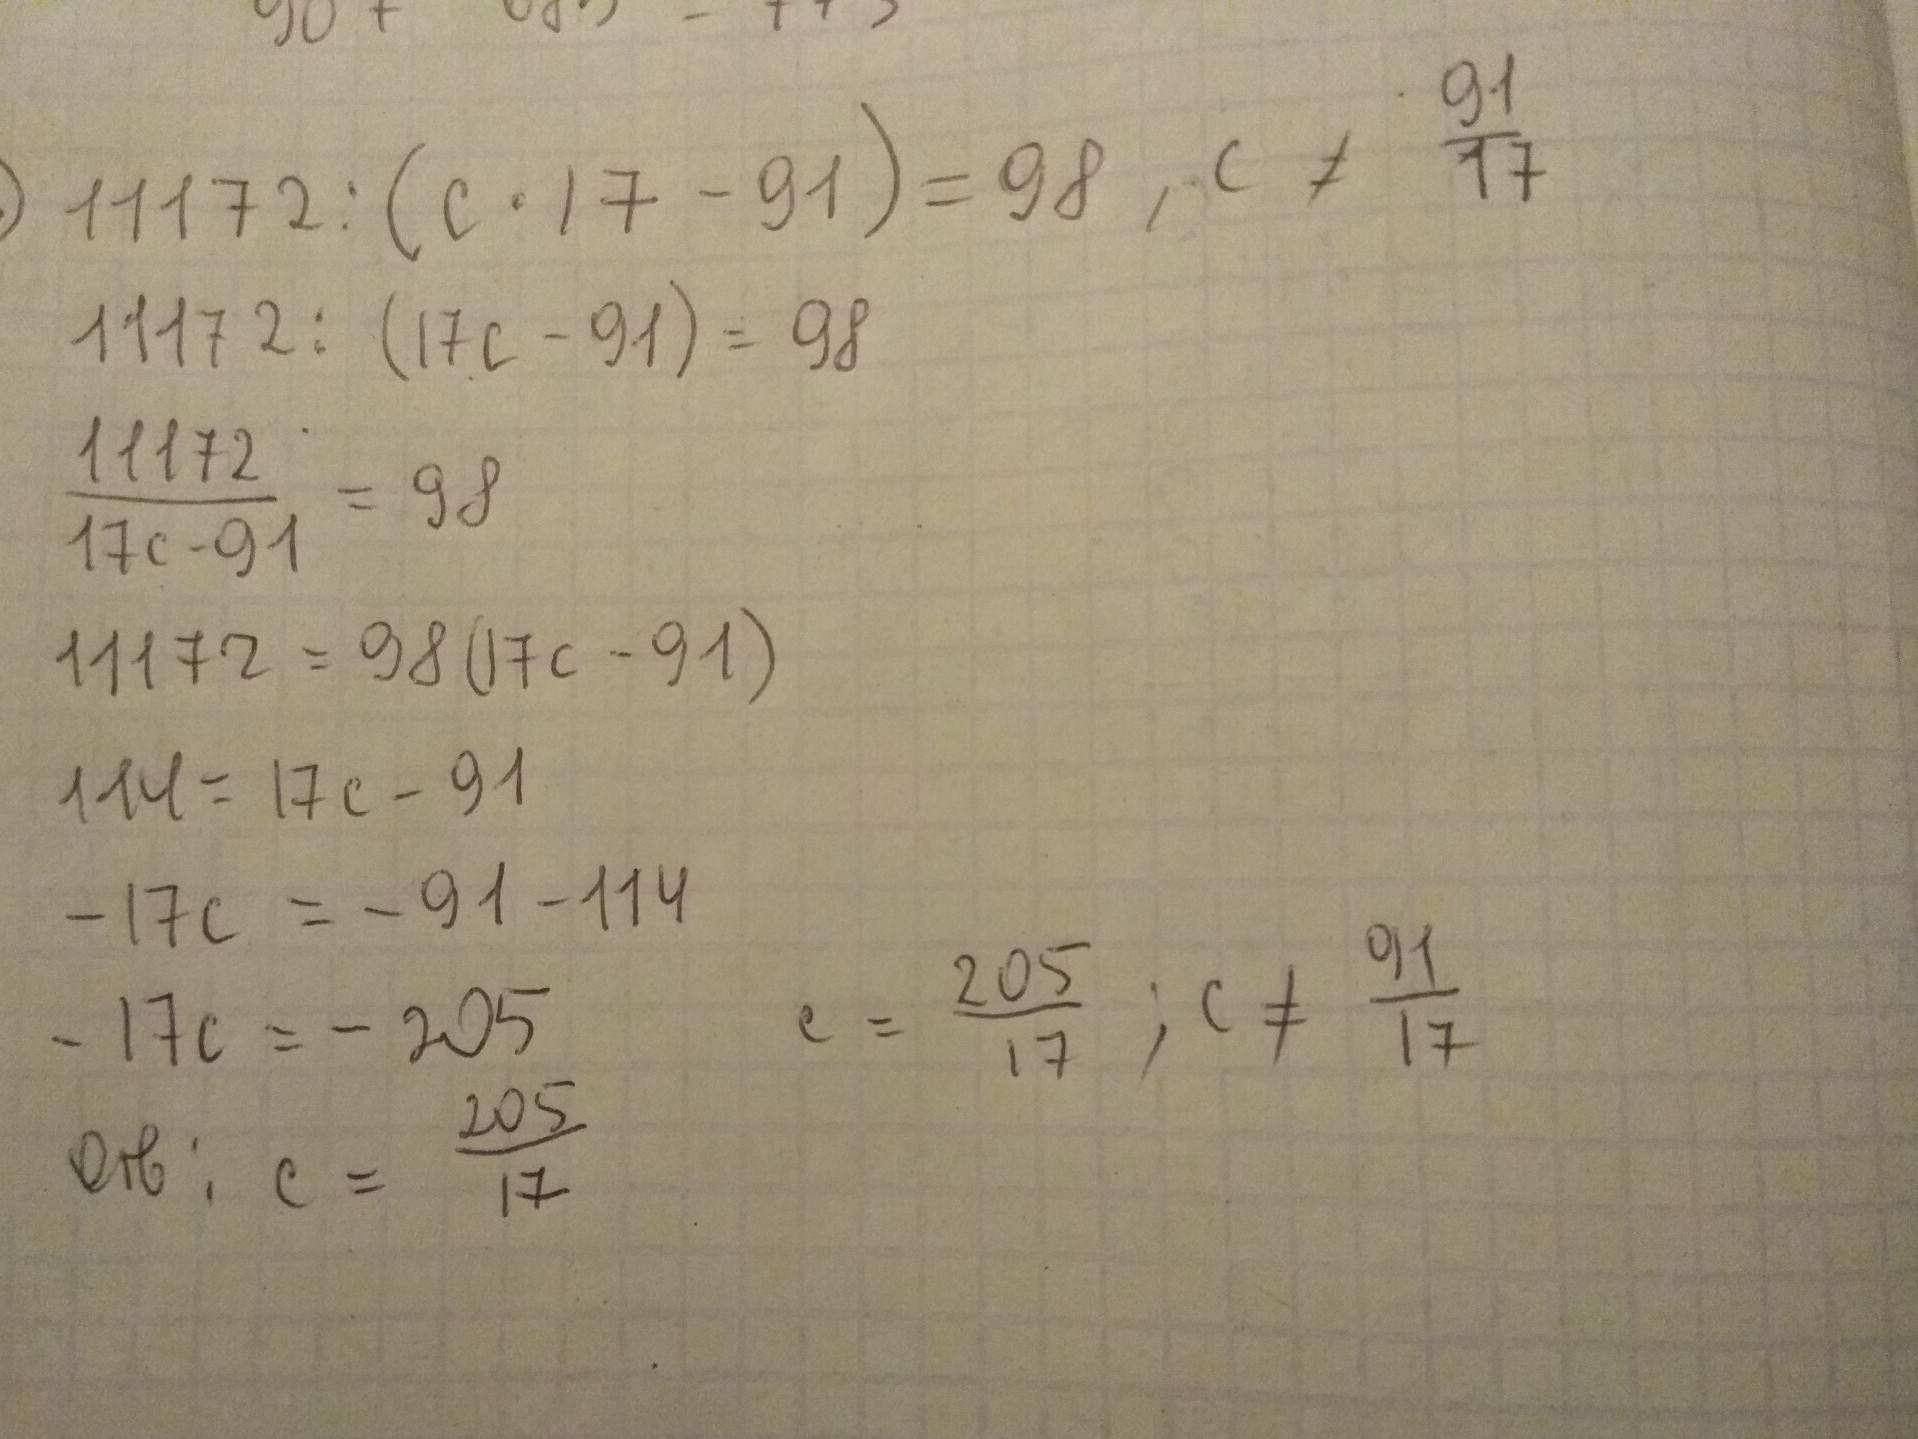 11172:(c·17-91)=98, c ≠ 91/17
11172: (17c-91)=98
11172/17c-91 = 98
11172=98(17c-91)
114=17c-91
-17c = -91-114
-17c = -205 c = 205/17 ; c ≠ 91/17
Отв: c = 205/17